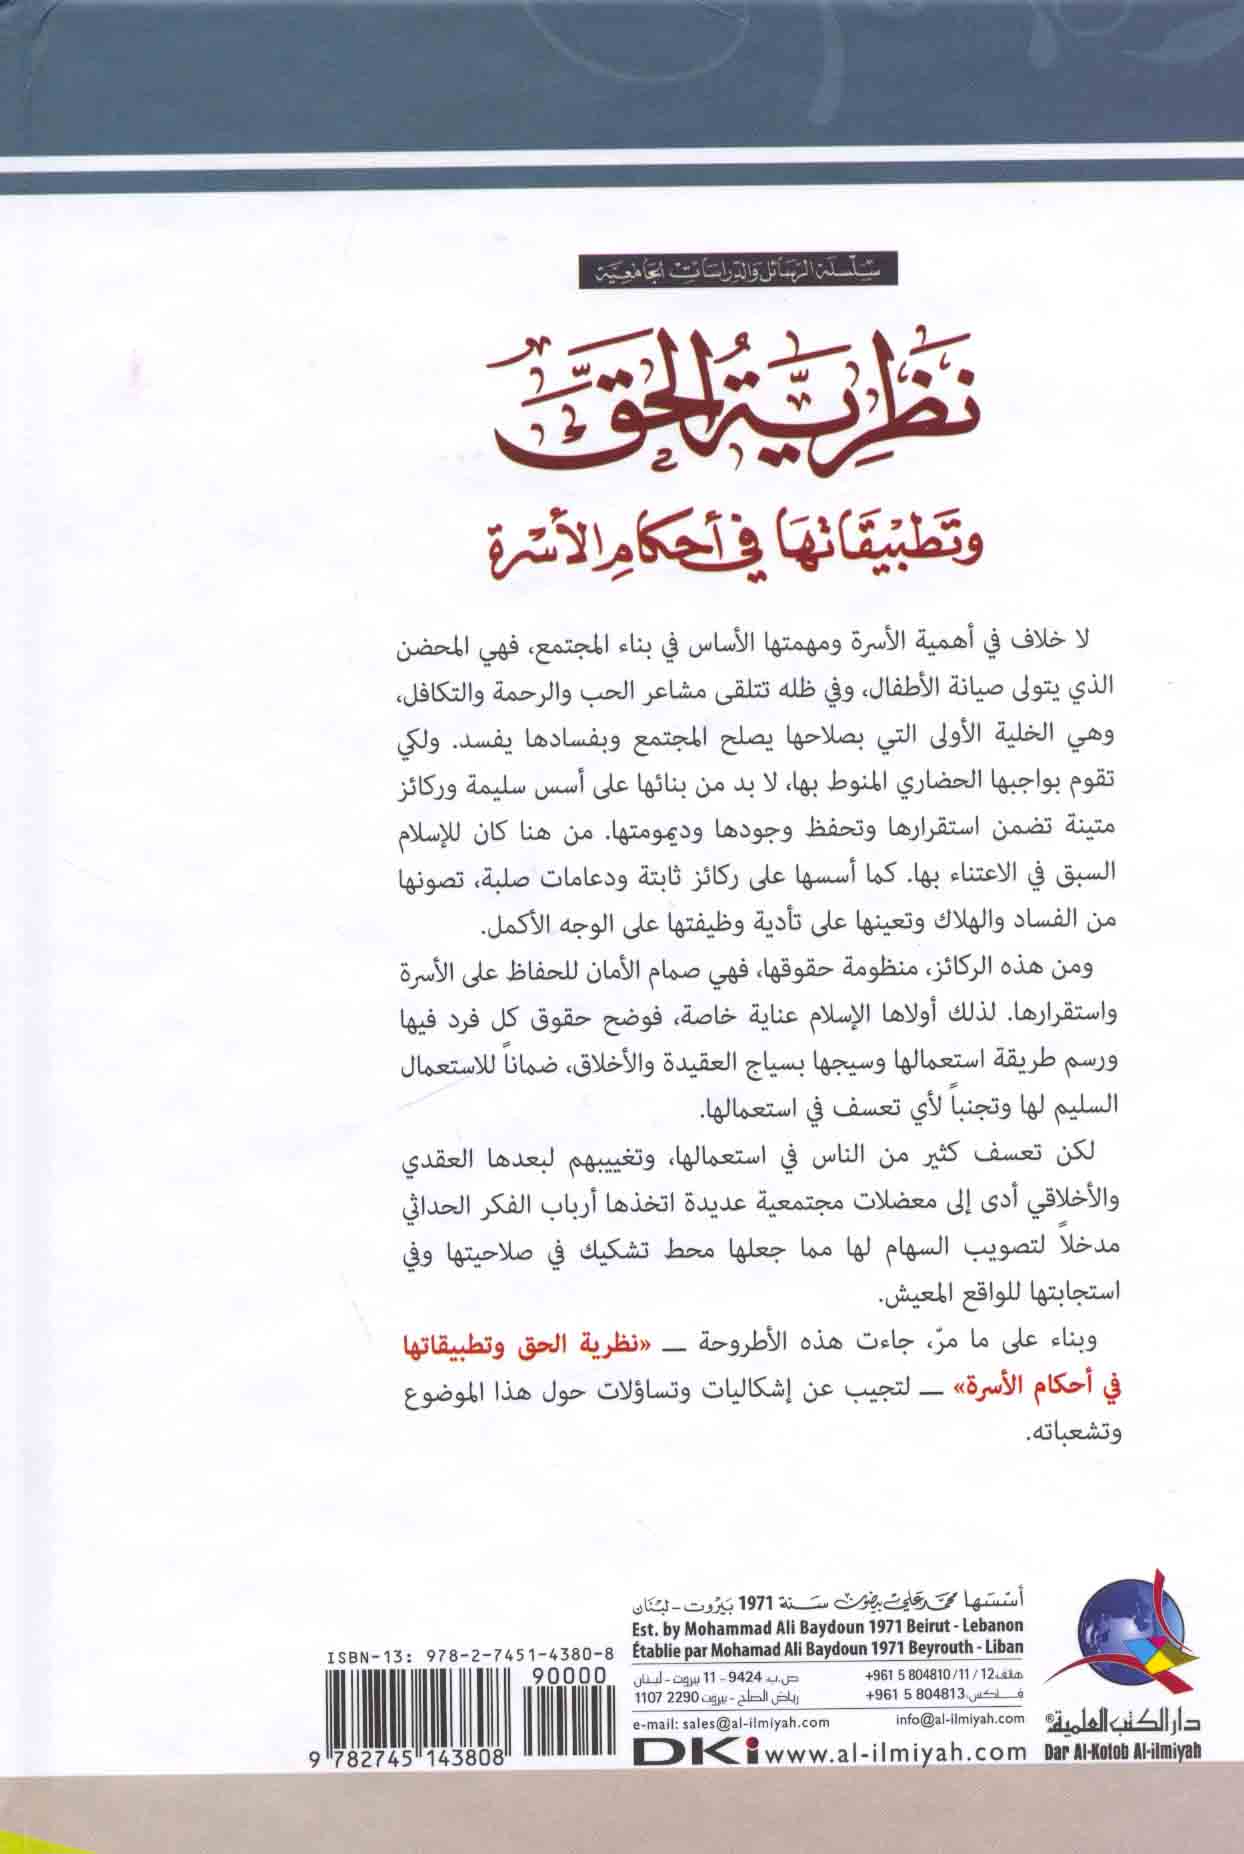 سلسلة الرسائل والدراسات الجامعية
نَظَرِيَّةُ الحَقِّ
وَتَطْبِيقَاتُهَا فِي أَحكَامِ الأُسْرَة
لا خلاف في أهمية الأسرة ومهمتها الأساس في بناء المجتمع، فهي المحضن
الذي يتولى صيانة الأطفال، وفي ظله تتلقى مشاعر الحب والرحمة والتكافل،
وهي الخلية الأولى التي بصلاحها يصلح المجتمع وبفسادها يفسد. ولكي
تقوم بواجبها الحضاري المنوط بها، لا بد من بنائها على أسس سليمة وركائز
متينة تضمن استقرارها وتحفظ وجودها وديمومتها. من هنا كان للإسلام
السبق في الاعتناء بها. كما أسسها على ركائز ثابتة ودعامات صلبة، تصونها
من الفساد والهلاك وتعينها على تأدية وظيفتها على الوجه الأكمل.
ومن هذه الركائز، منظومة حقوقها، فهي صمام الأمان للحفاظ على الأسرة
واستقرارها. لذلك أولاها الإسلام عناية خاصة، فوضح حقوق كل فرد فيها
ورسم طريقة استعمالها وسيجها بسياج العقيدة والأخلاق، ضماناً للاستعمال
السليم لها وتجنباً لأي تعسف في استعمالها.
لكن تعسف كثير من الناس في استعمالها، وتغييبهم لبعدها العقدي
والأخلاقي أدى إلى معضلات مجتمعية عديدة اتخذها أرباب الفكر الحداثي
مدخلاً لتصويب السهام لها مما جعلها محط تشكيك في صلاحيتها وفي
استجابتها للواقع المعيش.
وبناء على ما مرّ، جاءت هذه الأطروحة ـــ «نظرية الحق وتطبيقاتها
في أحكام الأسرة» ـــ لتجيب عن إشكاليات وتساؤلات حول هذا الموضوع
وتشعباته.
أسسها محمد علي بيضون سنة 1971 بيروت - لبنان
Est. by Mohammad Ali Baydoun 1971 Beirut - Lebanon
Établie par Mohamad Ali Baydoun 1971 Beyrouth - Liban
هاتف: +961 5 804810 /11 / 12
فاكس: +961 5 804813
ص.ب: 9424 - 11 بيروت - لبنان
رياض الصلح - بيروت 2290 1107
e-mail: sales@al-ilmiyah.com
info@al-ilmiyah.com
DKi www.al-ilmiyah.com
دار الكتب العلمية®
Dar Al-Kotob Al-ilmiyah
ISBN-13: 978-2-7451-4380-8
90000
9 782745 143808